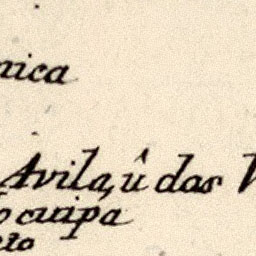 nica
Avila, û das V
ocuipa
to